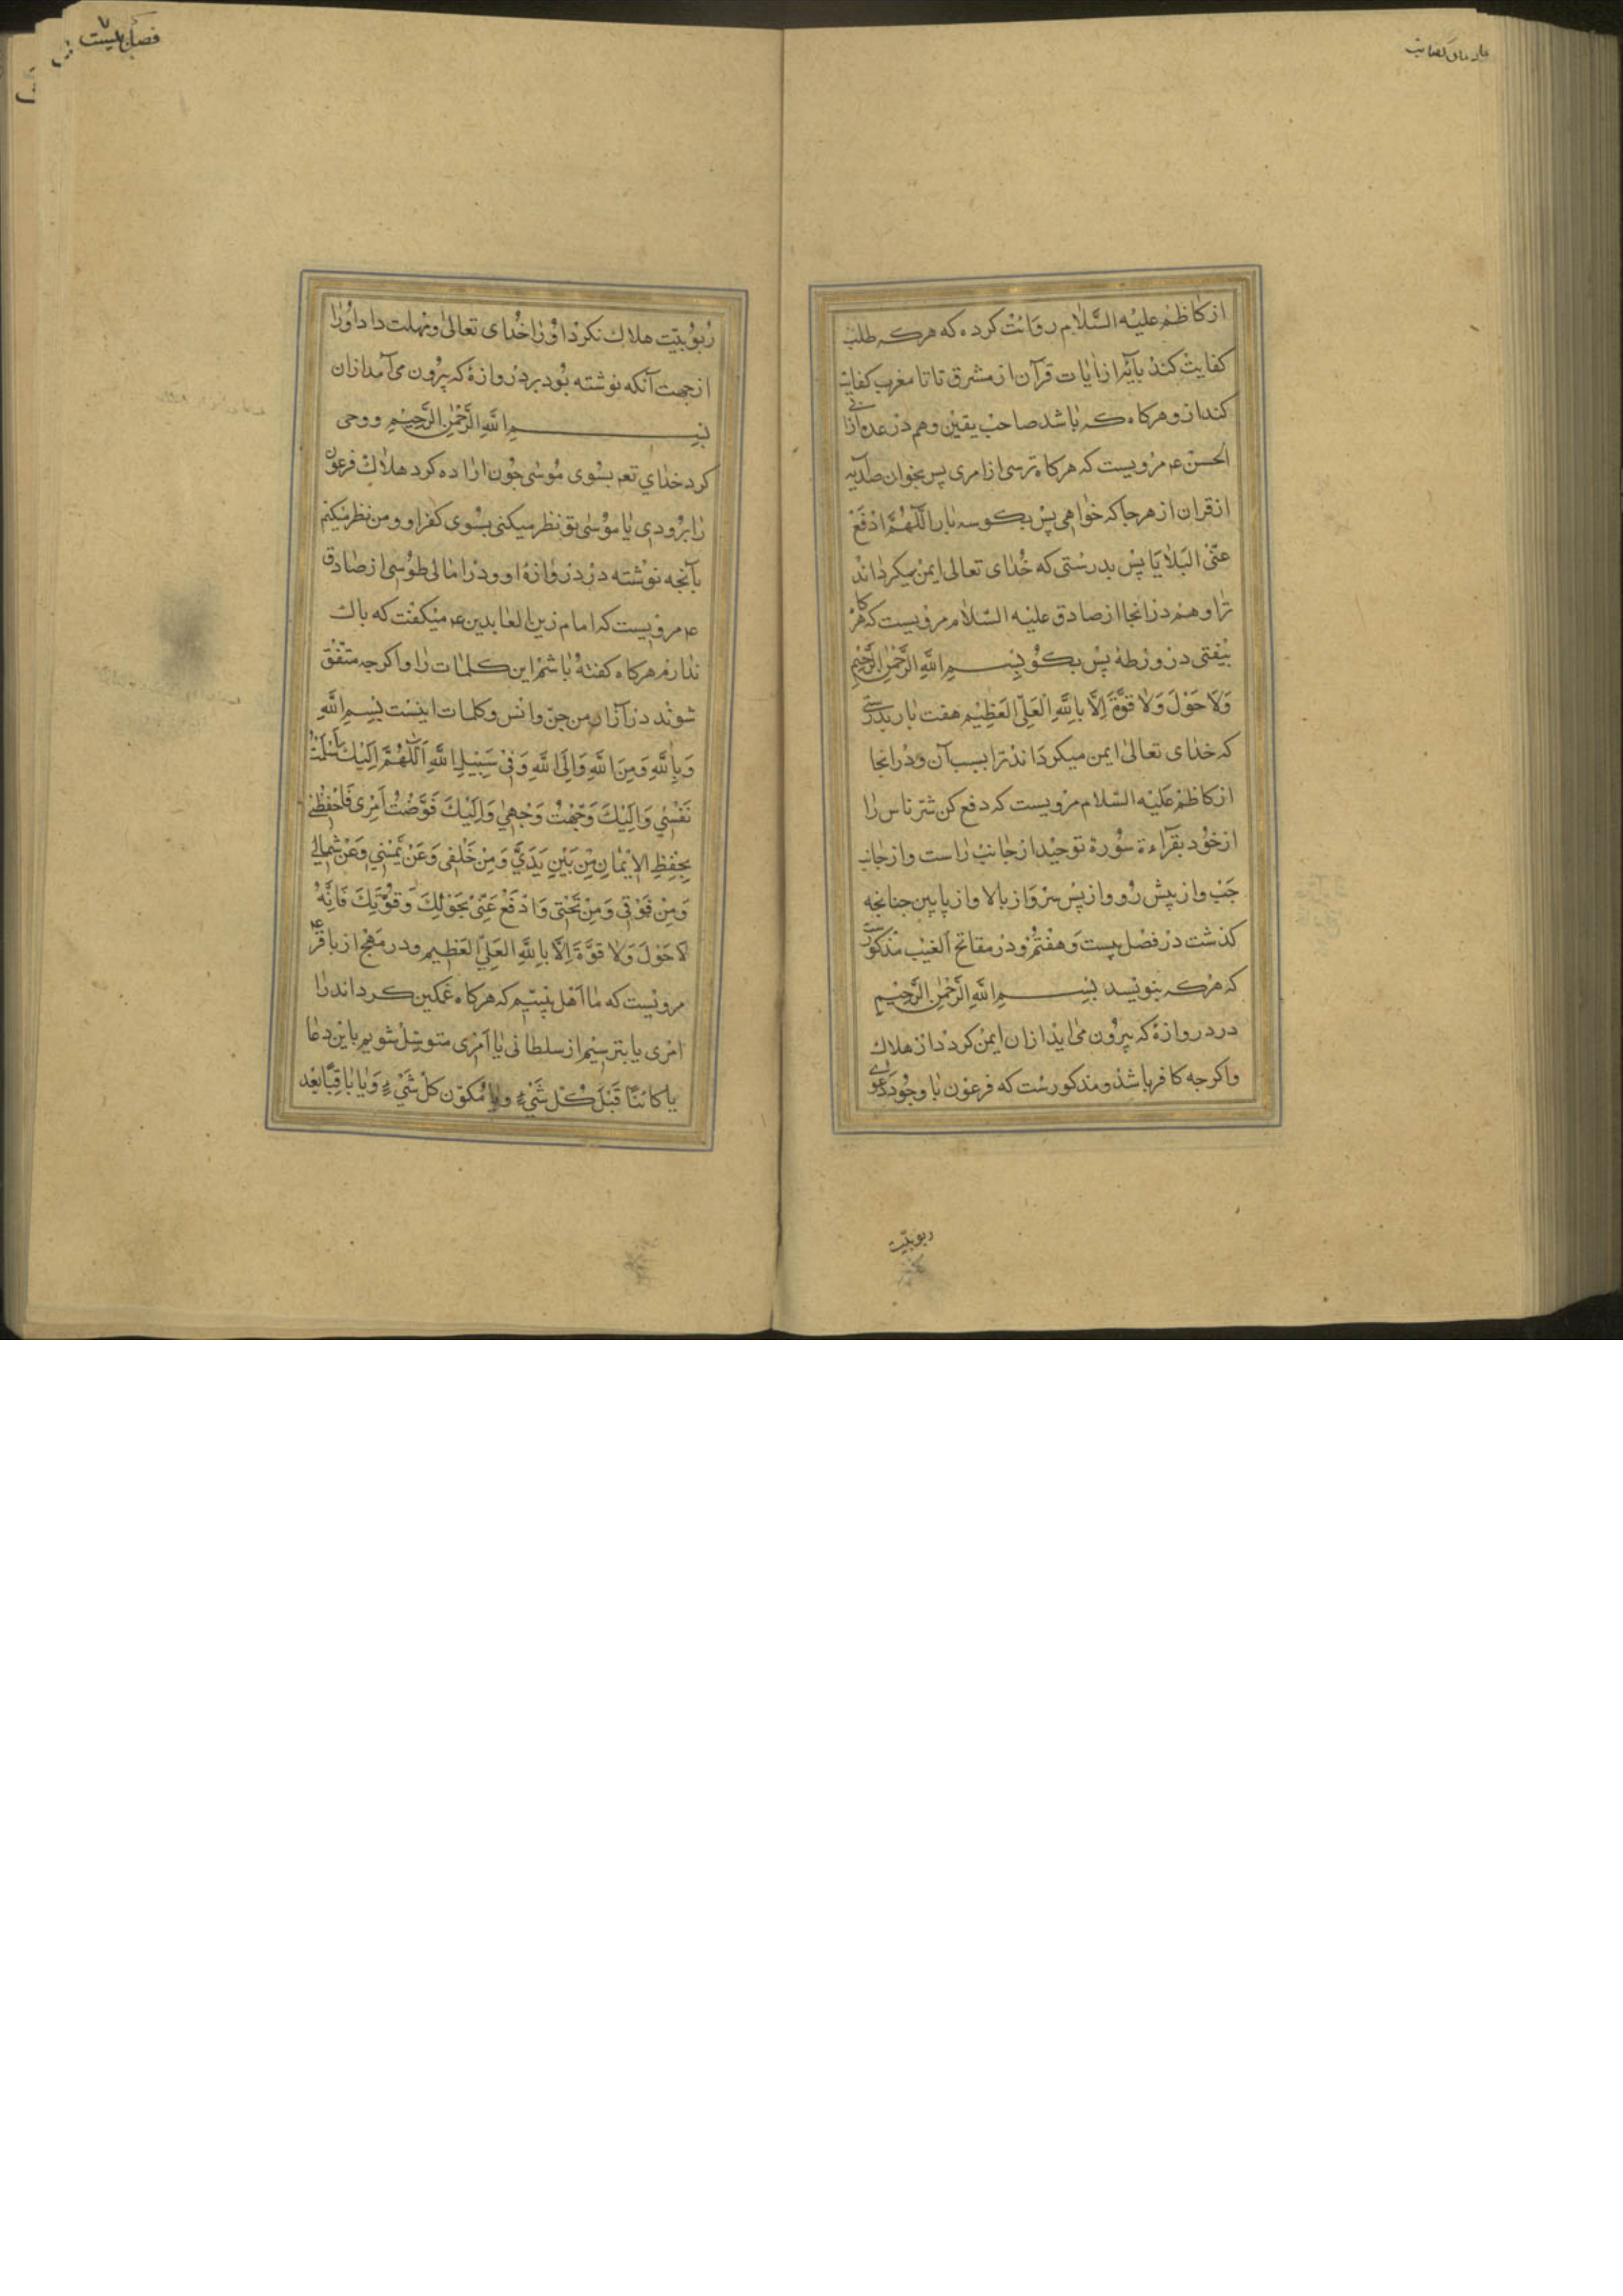 از کاظم علیه السّلام روایت کرده که هر که طلب
کفایت کند بآیهٔ از ایات قرآن از مشرق تا تا مغرب کفایت
کند ازو هرکاه که باشد صاحب یقین وهم در عدة از ابی
الحسن ع مرویست که هرکاه ترسی از امری پس بخوان صد آیه
از قران از هر جا که خواهی پس بکو سه بار اَللّهُمَّ ادْفَعْ
عَنّی البَلایَا پس بدرستی که خدای تعالی ایمن میکرداند
ترا وهم در انجا از صادق علیه السّلام مرویست که هر کاه
بیفتی در ورطه پس بکو بِسْمِ اللَّهِ الرَّحْمٰنِ الرَّحِیْمِ
وَلَا حَوْلَ وَلَا قُوَّةَ اِلَّا بِاللَّهِ الْعَلِیِّ الْعَظِیْمِ هفت بار بدرستی
که خدای تعالی ایمن میکرداند ترا بسبب آن و در انجا
از کاظم علیه السّلام مرویست که دفع کن شرّ ناس را
از خود بقرآءة سورة توحید از جانب راست و از جانب
چپ و از پیش رو و از پس سر و از بالا و از پایین جنانجه
کذشت در فصل بیست و هفتم و در مفاتح الغیب مذکورست
که هر که بنویسد بِسْمِ اللَّهِ الرَّحْمٰنِ الرَّحِیْمِ
در دروازهٔ که بیرون می اید ازان ایمن کردد از هلاک
واکرجه کافر باشد و مذکورست که فرعون با وجود دعوی
ربوبیّت
ربوبیّت هلاک نکرد او را خدای تعالی و مهلت داد او را
از جهت آنکه نوشته بود بر دروازهٔ که بیرون می آمد ازان
بِسْمِ اللَّهِ الرَّحْمٰنِ الرَّحِیْمِ و وحی
کرد خدای تعم بسوی موسی جون اراده کرد هلاک فرعون
را بزودی یا موسی تو نظر میکنی بسوی کفر او و من نظر میکنم
بآنجه نوشته در دروازهٔ او و در امالی طوسی از صادق
ع مرویست که امام زین العابدین ع میکفت که باک
ندارم هرکاه کفته باشم این کلمات را و اکرجه متّفق
شوند در آزار من جنّ و انس و کلمات اینست بِسْمِ اللَّهِ
وَبِاللَّهِ وَمِنَ اللَّهِ وَاِلَی اللَّهِ وَفِی سَبِیْلِ اللَّهِ اَللّهُمَّ اِلَیْكَ اَسْلَمْتُ
نَفْسِی وَاِلَیْكَ وَجَّهْتُ وَجْهِی وَاِلَیْكَ فَوَّضْتُ اَمْرِی فَاحْفَظْنِی
بِحِفْظِ الْاِیْمَانِ مِنْ بَیْنِ یَدَیَّ وَمِنْ خَلْفِی وَعَنْ یَمِیْنِی وَعَنْ شِمَالِی
وَمِنْ فَوْقِی وَمِنْ تَحْتِی وَادْفَعْ عَنّی بِحَوْلِكَ وَقُوَّتِكَ فَاِنَّهُ
لَا حَوْلَ وَلَا قُوَّةَ اِلَّا بِاللَّهِ العَلِیِّ العَظِیمِ و در مهج از باقر ع
مرویست که ما اهل بیتیم که هرکاه غمکین کرداند را
امری یا بترسیم از سلطانی یا امری متوسّل شویم باین دعا
یا کائنًا قَبْلَ کُلِّ شَیْءٍ وَیا مُکَوِّنَ کُلِّ شَیْءٍ وَیا بَاقِیًا بَعْدَ